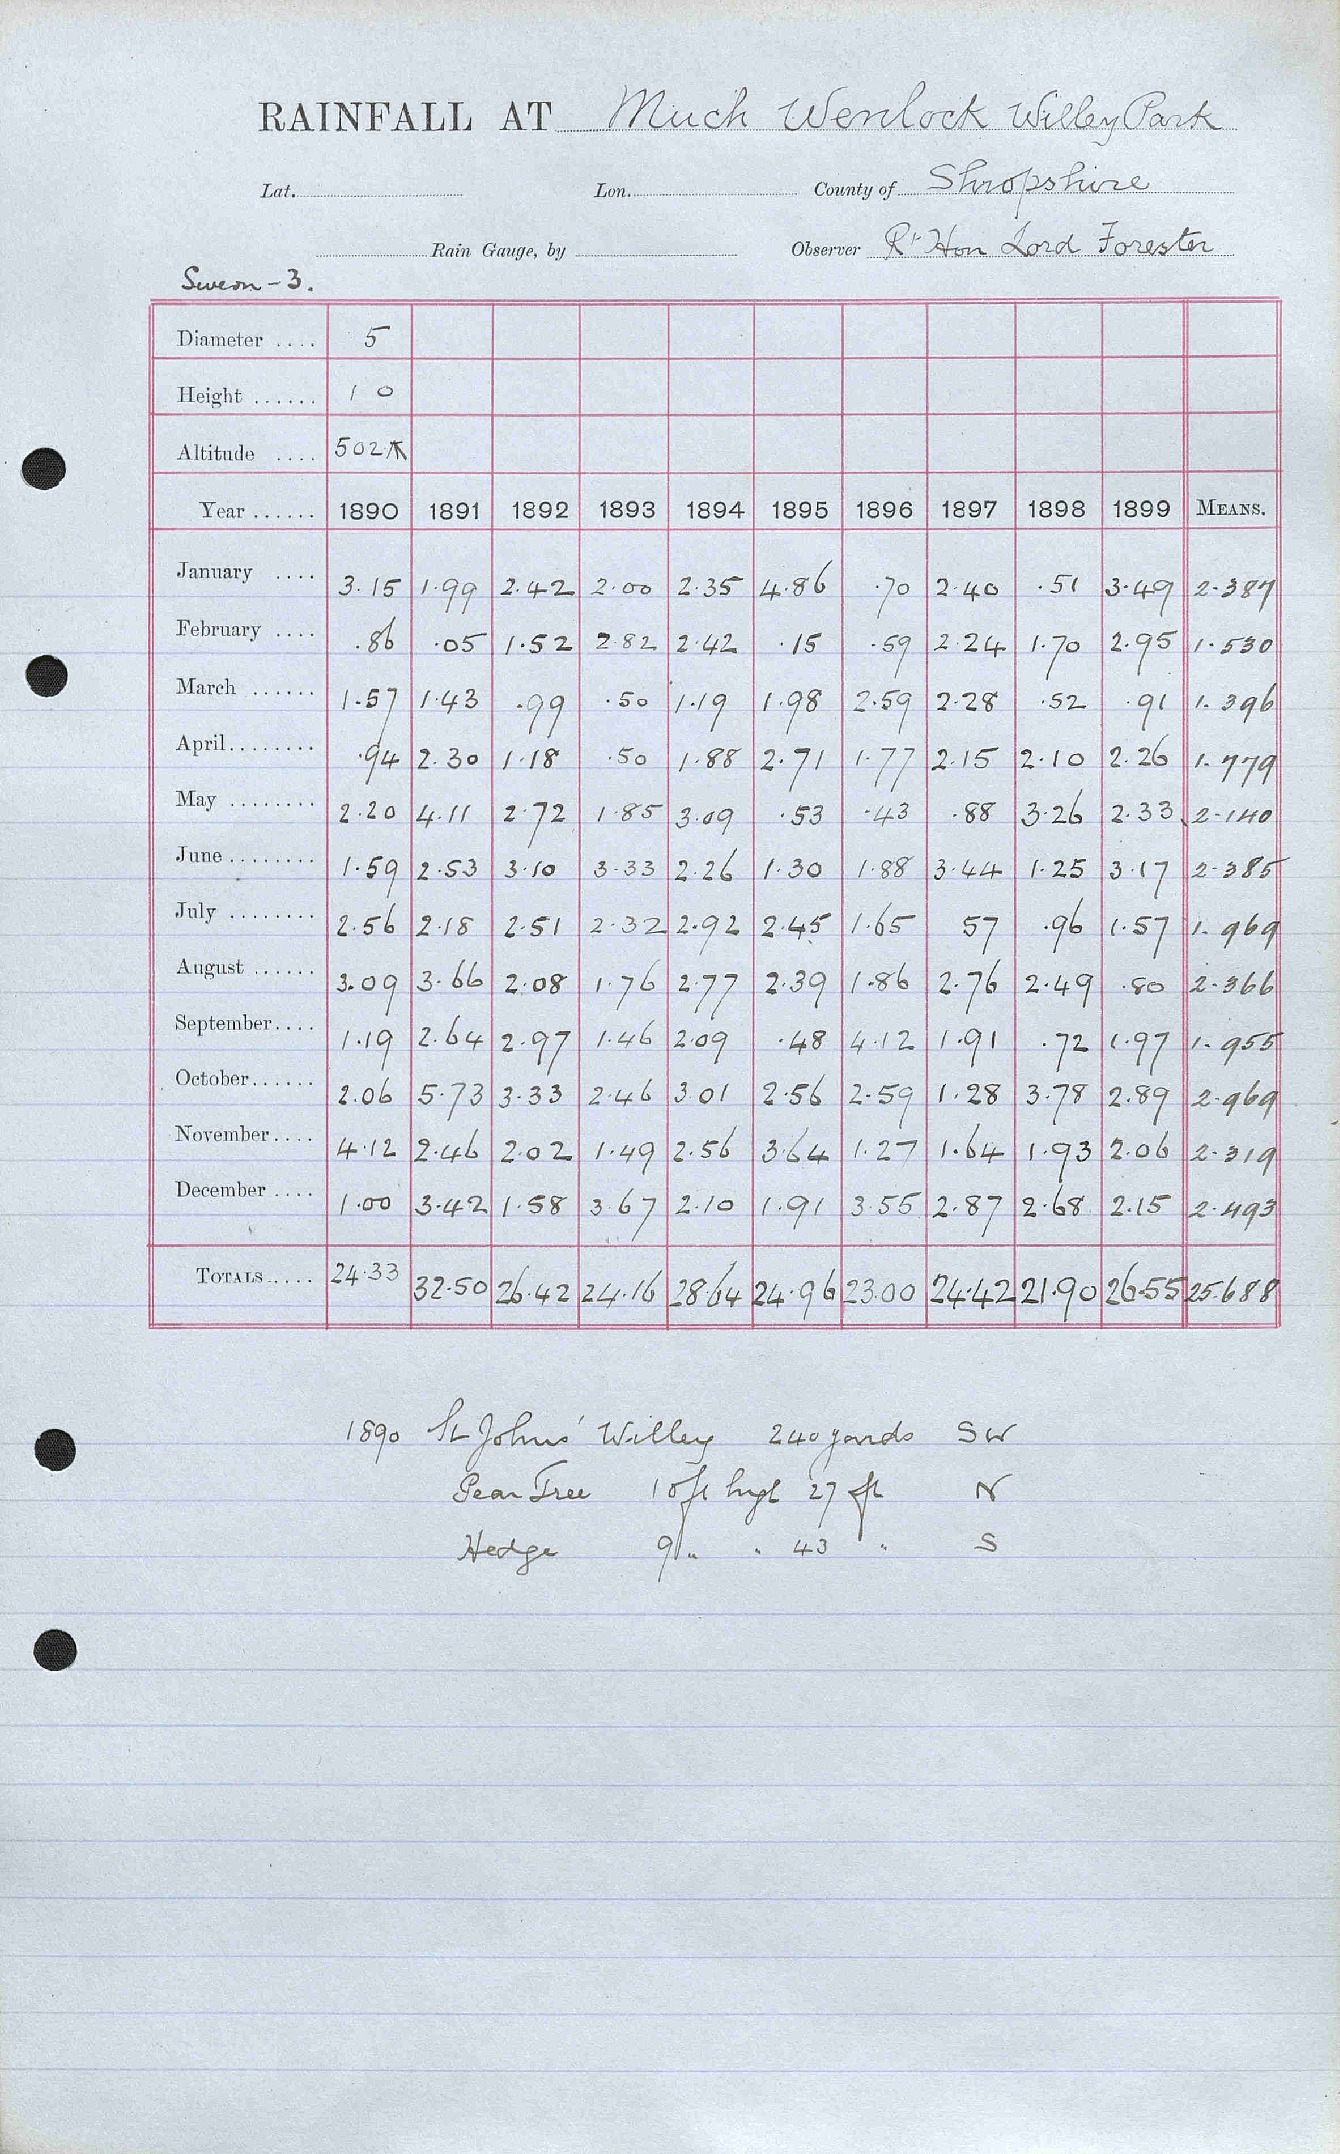 RAINFALL AT Much Wenlock Willey Park
Lat. Lon. County of Shropshire
Rain Gauge, by Observer Rt Hon Lord Forester
Severn-3.
Diameter .... 5
Height ...... 1 0
Altitude .... 502
Year ...... 1890 1891 1892 1893 1894 1895 1896 1897 1898 1899 MEANS.
January .... 3.15 1.99 2.42 2.00 2.35 4.86 .70 2.40 .51 3.49 2.387
February .... .86 .05 1.52 2.82 2.42 .15 .59 2.24 1.70 2.95 1.530
March ...... 1.57 1.43 .99 .50 1.19 1.98 2.59 2.28 .52 .91 1.396
April........ .94 2.30 1.18 .50 1.88 2.71 1.77 2.15 2.10 2.26 1.779
May ........ 2.20 4.11 2.72 1.85 3.09 .53 .43 .88 3.26 2.33 2.140
June ........ 1.59 2.53 3.10 3.33 2.26 1.30 1.88 3.44 1.25 3.17 2.385
July ........ 2.56 2.18 2.51 2.32 2.92 2.45 1.65 57 .96 1.57 1.969
August ...... 3.09 3.66 2.08 1.76 2.77 2.39 1.86 2.76 2.49 .80 2.366
September.... 1.19 2.64 2.97 1.46 2.09 .48 4.12 1.91 .72 1.97 1.955
October...... 2.06 5.73 3.33 2.46 3.01 2.56 2.59 1.28 3.78 2.89 2.969
November.... 4.12 2.46 2.02 1.49 2.56 3.64 1.27 1.64 1.93 2.06 2.319
December .... 1.00 3.42 1.58 3.67 2.10 1.91 3.55 2.87 2.68 2.15 2.493
TOTALS..... 24.33 32.50 26.42 24.16 28.64 24.96 23.00 24.42 21.90 26.55 25.688
1890 St Johns' Willey 240 yards SW
Pear Tree 10 ft high 27 ft N
Hedge 9 " " 43 " S